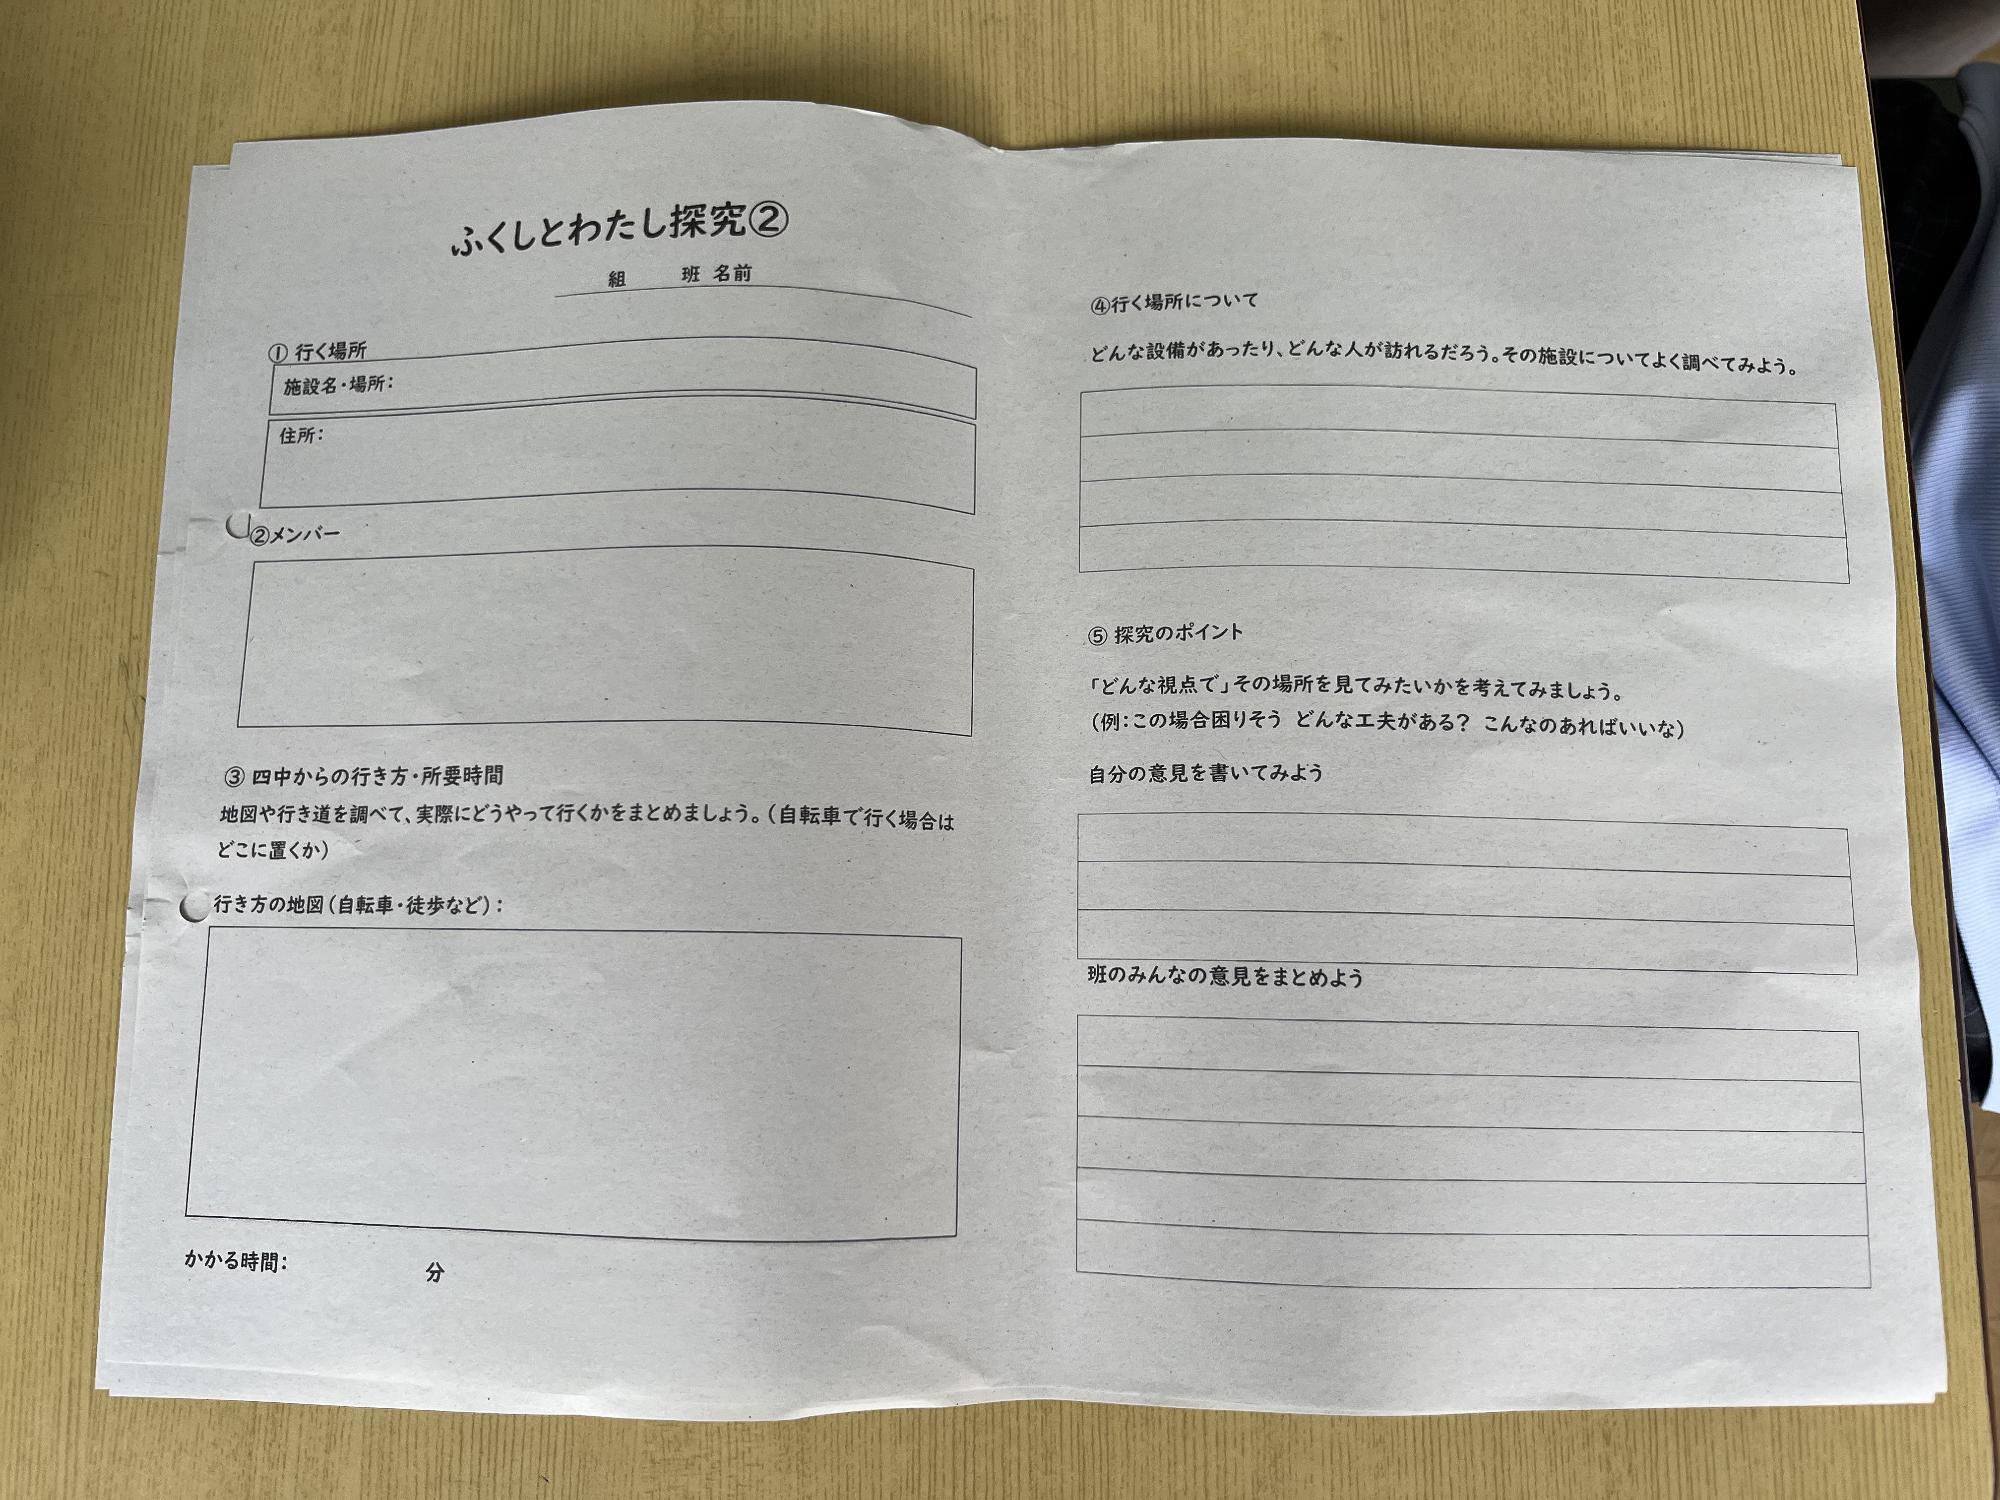 ふくしとわたし探究②
組 班 名前
① 行く場所
施設名・場所：
住所：
②メンバー
③ 四中からの行き方・所要時間
地図や行き道を調べて、実際にどうやって行くかをまとめましょう。（自転車で行く場合は
どこに置くか）
行き方の地図（自転車・徒歩など）：
かかる時間： 分
④行く場所について
どんな設備があったり、どんな人が訪れるだろう。その施設についてよく調べてみよう。
⑤ 探究のポイント
「どんな視点で」その場所を見てみたいかを考えてみましょう。
（例：この場合困りそう どんな工夫がある？ こんなのあればいいな）
自分の意見を書いてみよう
班のみんなの意見をまとめよう